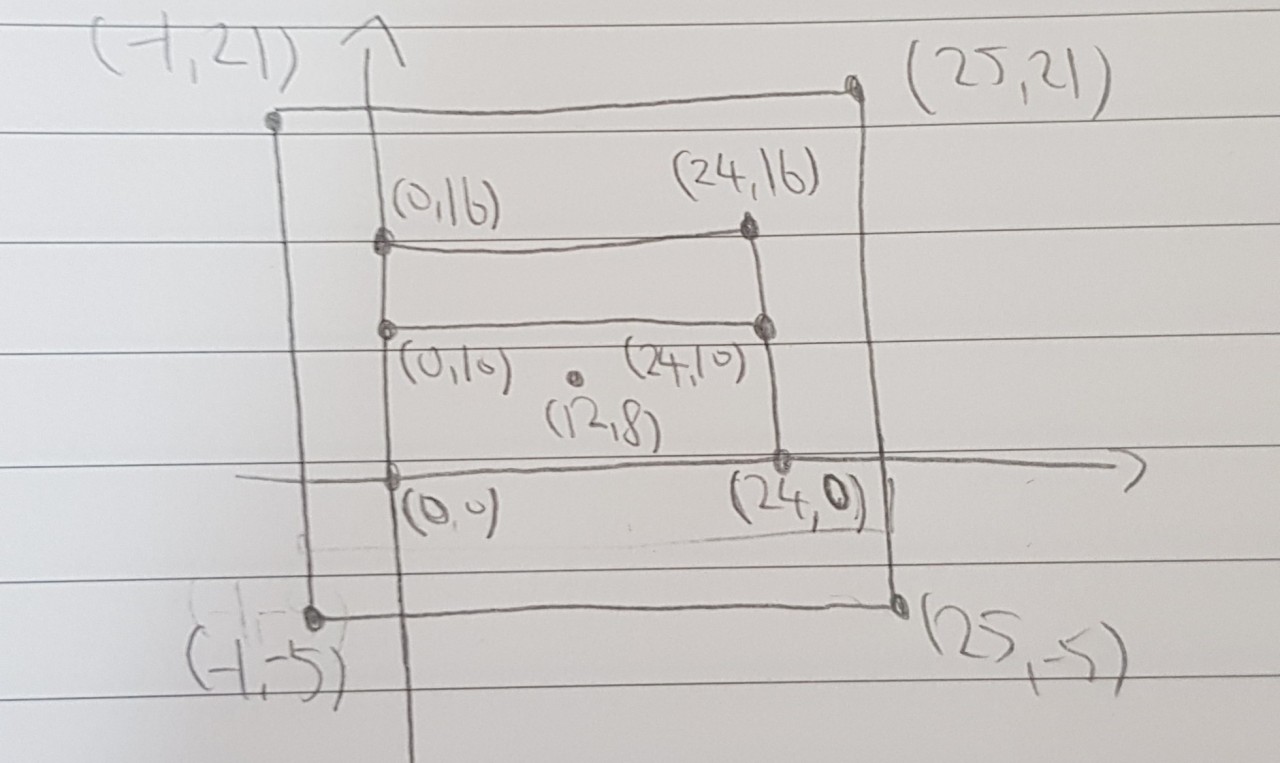 (-1,21)
(25,21)
(24,16)
(0,16)
(0,10)
(24,10)
(12,8)
(0,0)
(24,0)
(-1,-5)
(25,-5)